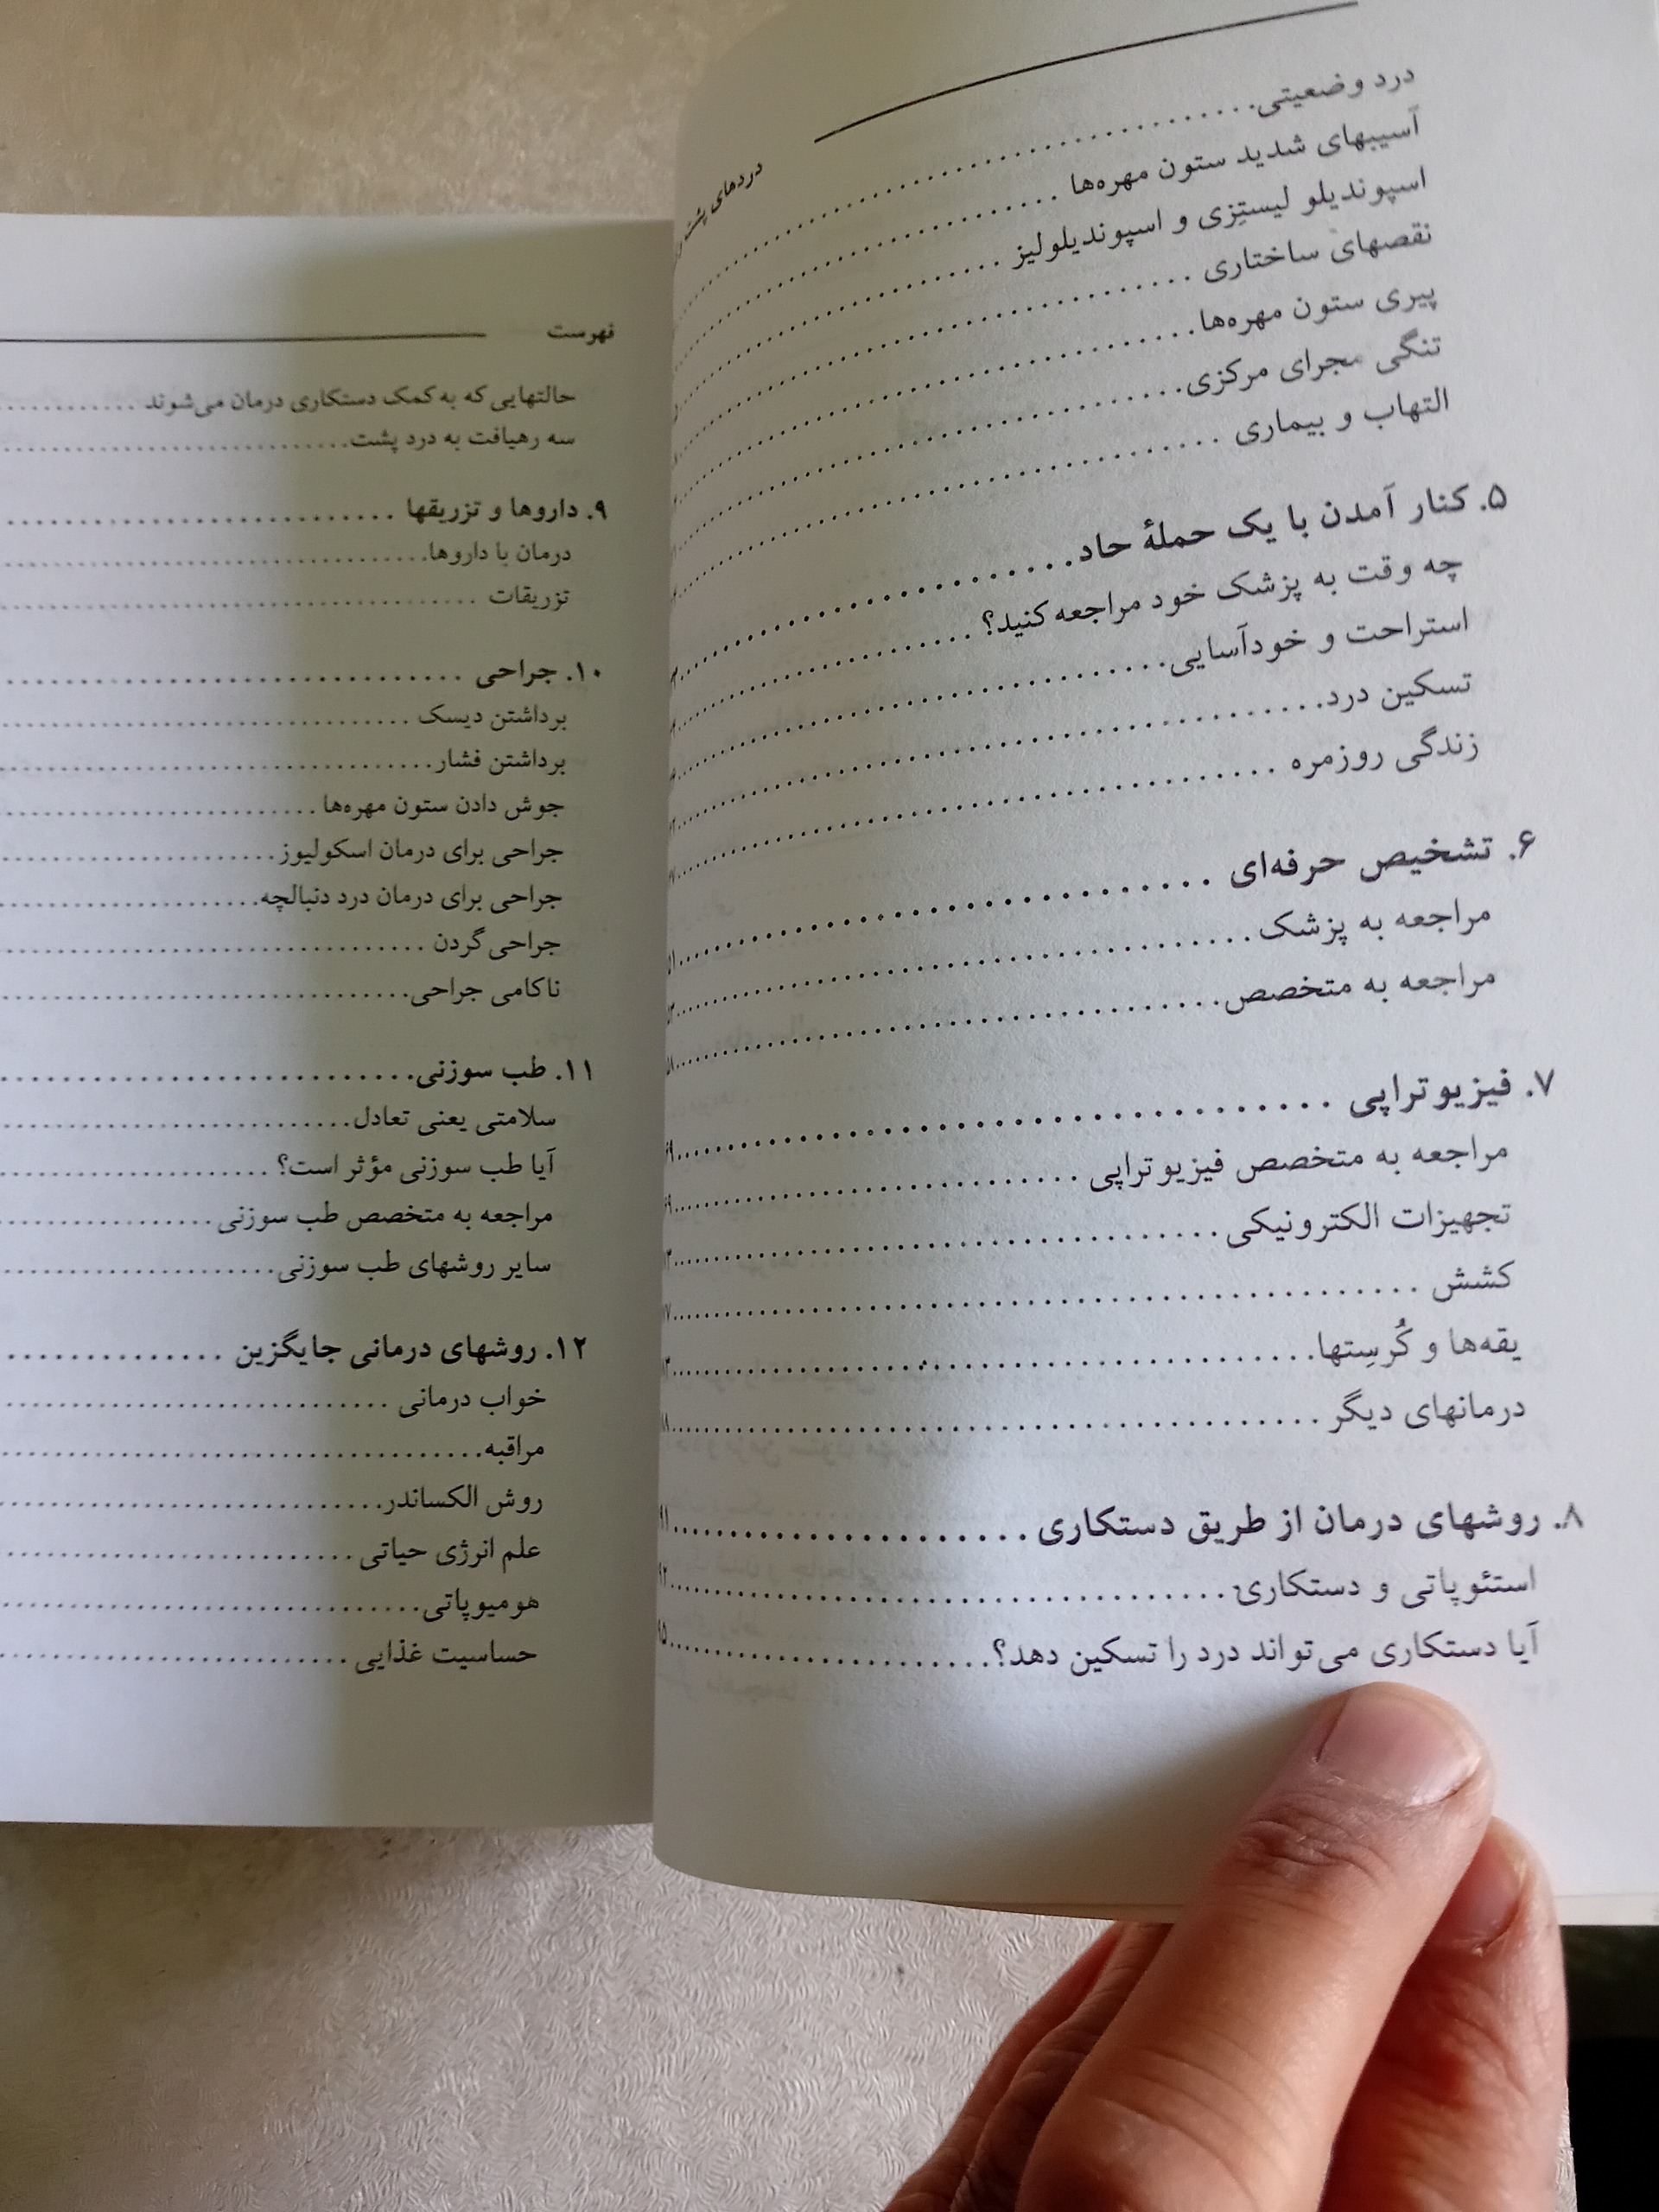 دردهای پشت
درد وضعیتی
آسیبهای شدید ستون مهره‌ها
اسپوندیلو لیستِزی و اسپوندیلولیز
نقصهای ساختاری
پیری ستون مهره‌ها
تنگی مجرای مرکزی
التهاب و بیماری
۵. کنار آمدن با یک حملهٔ حاد
چه وقت به پزشک خود مراجعه کنید؟
استراحت و خودآسایی
تسکین درد
زندگی روزمره
۶. تشخیص حرفه‌ای
مراجعه به پزشک
مراجعه به متخصص
۷. فیزیوتراپی
مراجعه به متخصص فیزیوتراپی
تجهیزات الکترونیکی
کشش
یقه‌ها و کُرسِتها
درمانهای دیگر
۸. روشهای درمان از طریق دستکاری
استئوپاتی و دستکاری
آیا دستکاری می‌تواند درد را تسکین دهد؟
فهرست
حالتهایی که به کمک دستکاری درمان می‌شوند
سه رهیافت به درد پشت
۹. داروها و تزریقها
درمان با داروها
تزریقات
۱۰. جراحی
برداشتن دیسک
برداشتن فشار
جوش دادن ستون مهره‌ها
جراحی برای درمان اسکولیوز
جراحی برای درمان درد دنبالچه
جراحی گردن
ناکامی جراحی
۱۱. طب سوزنی
سلامتی یعنی تعادل
آیا طب سوزنی مؤثر است؟
مراجعه به متخصص طب سوزنی
سایر روشهای طب سوزنی
۱۲. روشهای درمانی جایگزین
خواب درمانی
مراقبه
روش الکساندر
علم انرژی حیاتی
هومیوپاتی
حساسیت غذایی